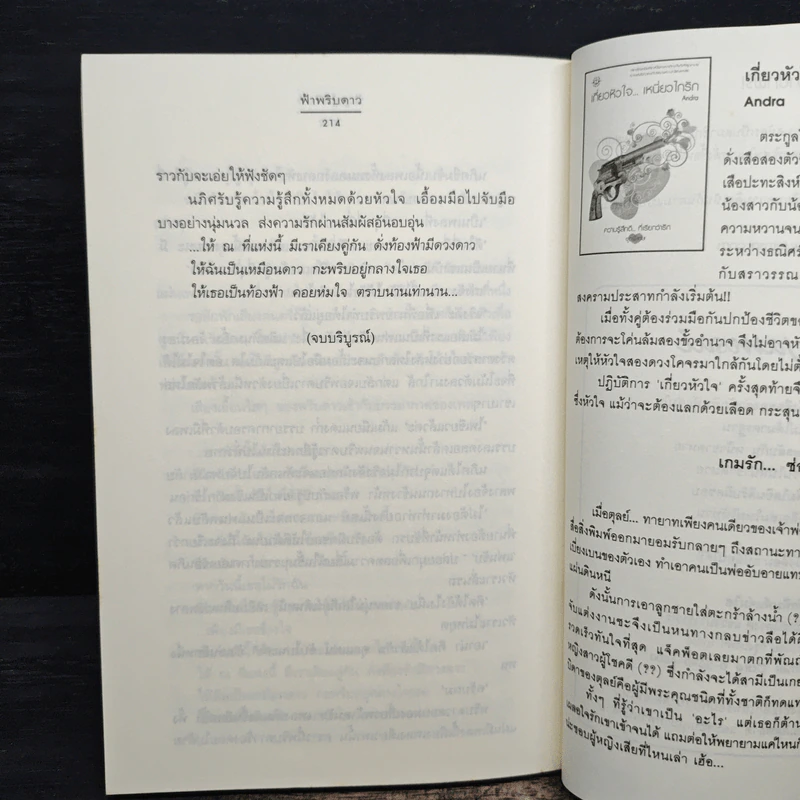 ฟ้าพริบดาว
214
ราวกับจะเอ่ยให้ฟังชัดๆ
นภิศรับรู้ความรู้สึกทั้งหมดด้วยหัวใจ เอื้อมมือไปจับมือ
บางอย่างนุ่มนวล ส่งความรักผ่านสัมผัสอันอบอุ่น
...ให้ ณ ที่แห่งนี้ มีเราเคียงคู่กัน ดั่งท้องฟ้ามีดวงดาว
ให้ฉันเป็นเหมือนดาว กะพริบอยู่กลางใจเธอ
ให้เธอเป็นท้องฟ้า คอยห่มใจ ตราบนานเท่านาน...
(จบบริบูรณ์)
เกี่ยวหัวใจ... เหนี่ยวไกรัก
Andra
ความรู้สึกดี... ที่เรียกว่ารัก
เกี่ยวหัว
Andra
ตระกูล
ดั่งเสือสองตัว
เสือปะทะสิงห์
น้องสาวกับน้อ
ความหวานจน
ระหว่างธณิศร์
กับสราวรรณ
สงครามประสาทกำลังเริ่มต้น!!
เมื่อทั้งคู่ต้องร่วมมือกันปกป้องชีวิตขอ
ต้องการจะโค่นล้มสองขั้วอำนาจ จึงไม่อาจหั
เหตุให้หัวใจสองดวงโคจรมาใกล้กันโดยไม่ตั้
ปฏิบัติการ 'เกี่ยวหัวใจ' ครั้งสุดท้ายจึ
ซึ่งหัวใจ แม้ว่าจะต้องแลกด้วยเลือด กระสุน
เกมรัก... ซ่อ
เมื่อตุลย์... ทายาทเพียงคนเดียวของเจ้าพ่อ
สื่อสิ่งพิมพ์ออกมายอมรับกลายๆ ถึงสถานะทา
เบี่ยงเบนของตัวเอง ทำเอาคนเป็นพ่ออับอายแทบ
แผ่นดินหนี
ดังนั้นการเอาลูกชายใส่ตะกร้าล้างน้ำ (?
จับแต่งงานซะจึงเป็นหนทางกลบข่าวลือได้ดี
รวดเร็วทันใจที่สุด แจ็คพ็อตเลยมาตกที่พัณณ
หญิงสาวผู้โชคดี (??) ซึ่งกำลังจะได้สามีเป็นเกย
บิดาของตุลย์คือผู้มีพระคุณชนิดที่ทั้งชาติก็ทดแท
ทั้งๆ ที่รู้ว่าเขาเป็น 'อะไร' แต่เธอก็ต้าน
เผลอใจรักเขาเข้าจนได้ แถมต่อให้พยายามแค่ไหนก็
น่ะชอบผู้หญิงเสียที่ไหนเล่า เฮ้อ...